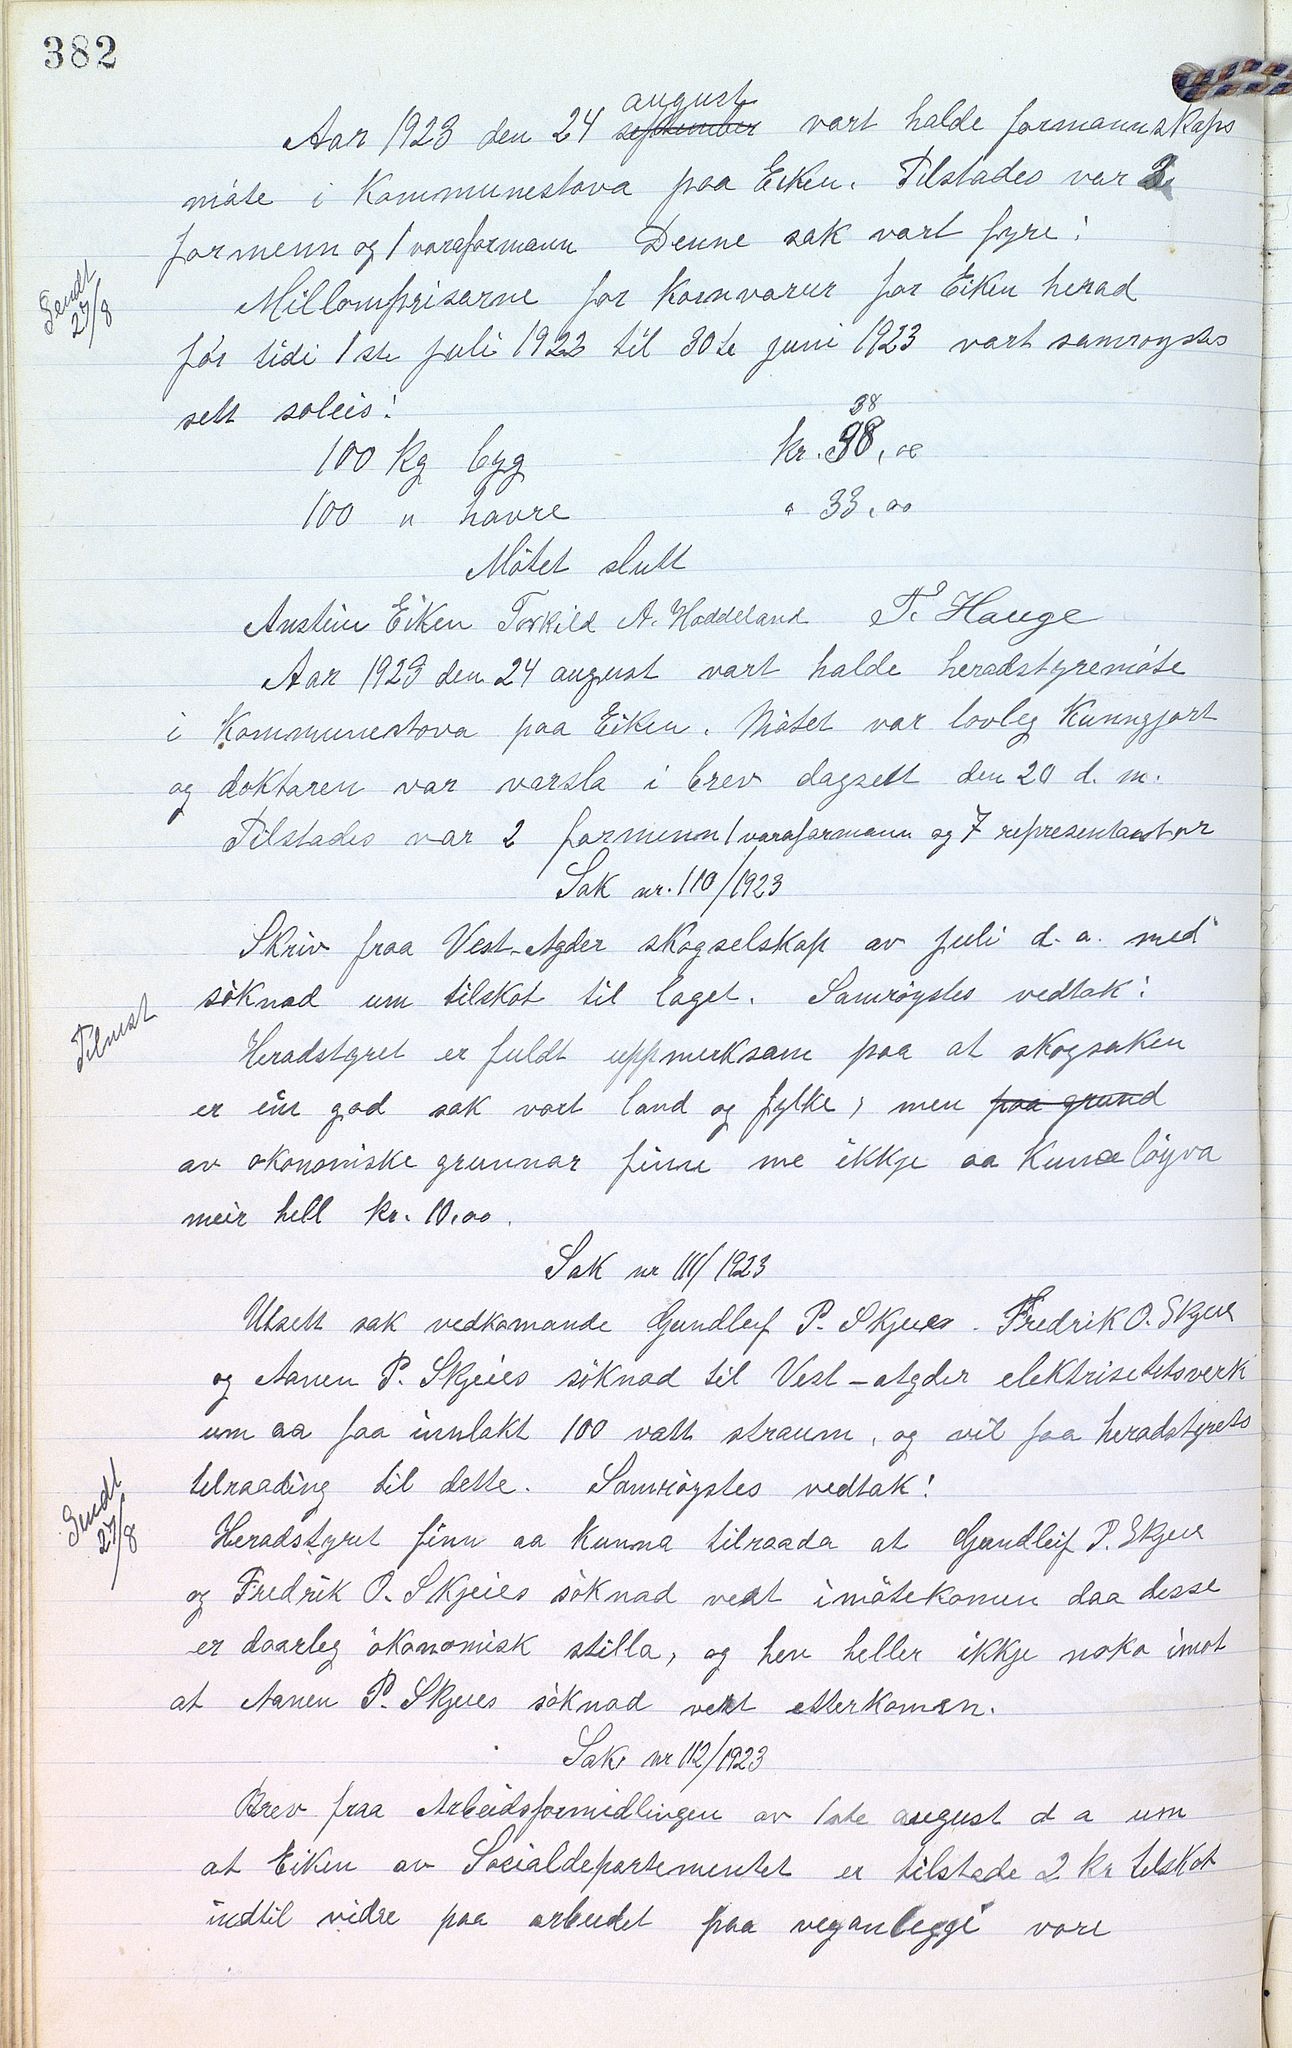 382
august
Aar 1923 den 24 september vart halde formannskaps
møte i Kommunestova paa Eiken. Tilstades var 2
formenn og 1 varaformann Denne sak vart fyre:
Sendt
27/8
Millomprisarne for kornvarur for Eiken herad
før tidi 1ste juli 1922 til 30te juni 1923 vart samrøystes
sett soleis:
38
100 kg byg kr. 38,00
100 " havre " 33,00
Møtet slutt
Anstein Eiken Torkild A. Haddeland T. Hauge
Aar 1923 den 24 august vart halde heradstyremøte
i Kommunestova paa Eiken. Møtet var lovleg kunngjort
og doktaren var varsla i brev dagsett den 20 d. m.
Tilstades var 2 formenn 1 varaformann og 7 representantar
Sak nr. 110/1923
Skriv fraa Vest-Agder skogselskap av juli d. a. med
søknad um tilskot til laget. Samrøystes vedtak:
Heradstyret er fuldt uppmerksam paa at skogsaken
er ein god sak vort land og fylke, men paa grund
av økonomiske grunnar finn me ikkje aa kunne løyva
meir hell kr. 10,00.
Sak nr 111/1923
Utsett sak vedkomande Gundleif P. Skjeies. Fredrik O. Skjeie
og Aanen P. Skjeies søknad til Vest-Agder elektrisetetsverk
um aa faa innlakt 100 vatt straum, og vil faa heradstyrets
tilraading til dette. Samrøystes vedtak:
Sendt
27/8
Heradstyret finn aa kunna tilraada at Gundleif P. Skjeie
og Fredrik O. Skjeies søknad vert imøtekomen daa desse
er daarleg økonomisk stilla, og hev heller ikkje noko imot
at Aanen P. Skjeies søknad vert etterkomen.
Sak nr 112/1923
Brev fraa Arbeidsformidlingen av 1ste august d a um
at Eiken av Socialdepartementet er tilstade 2 kr tilskot
indtil vidre paa arbeidet paa veganleggi vore